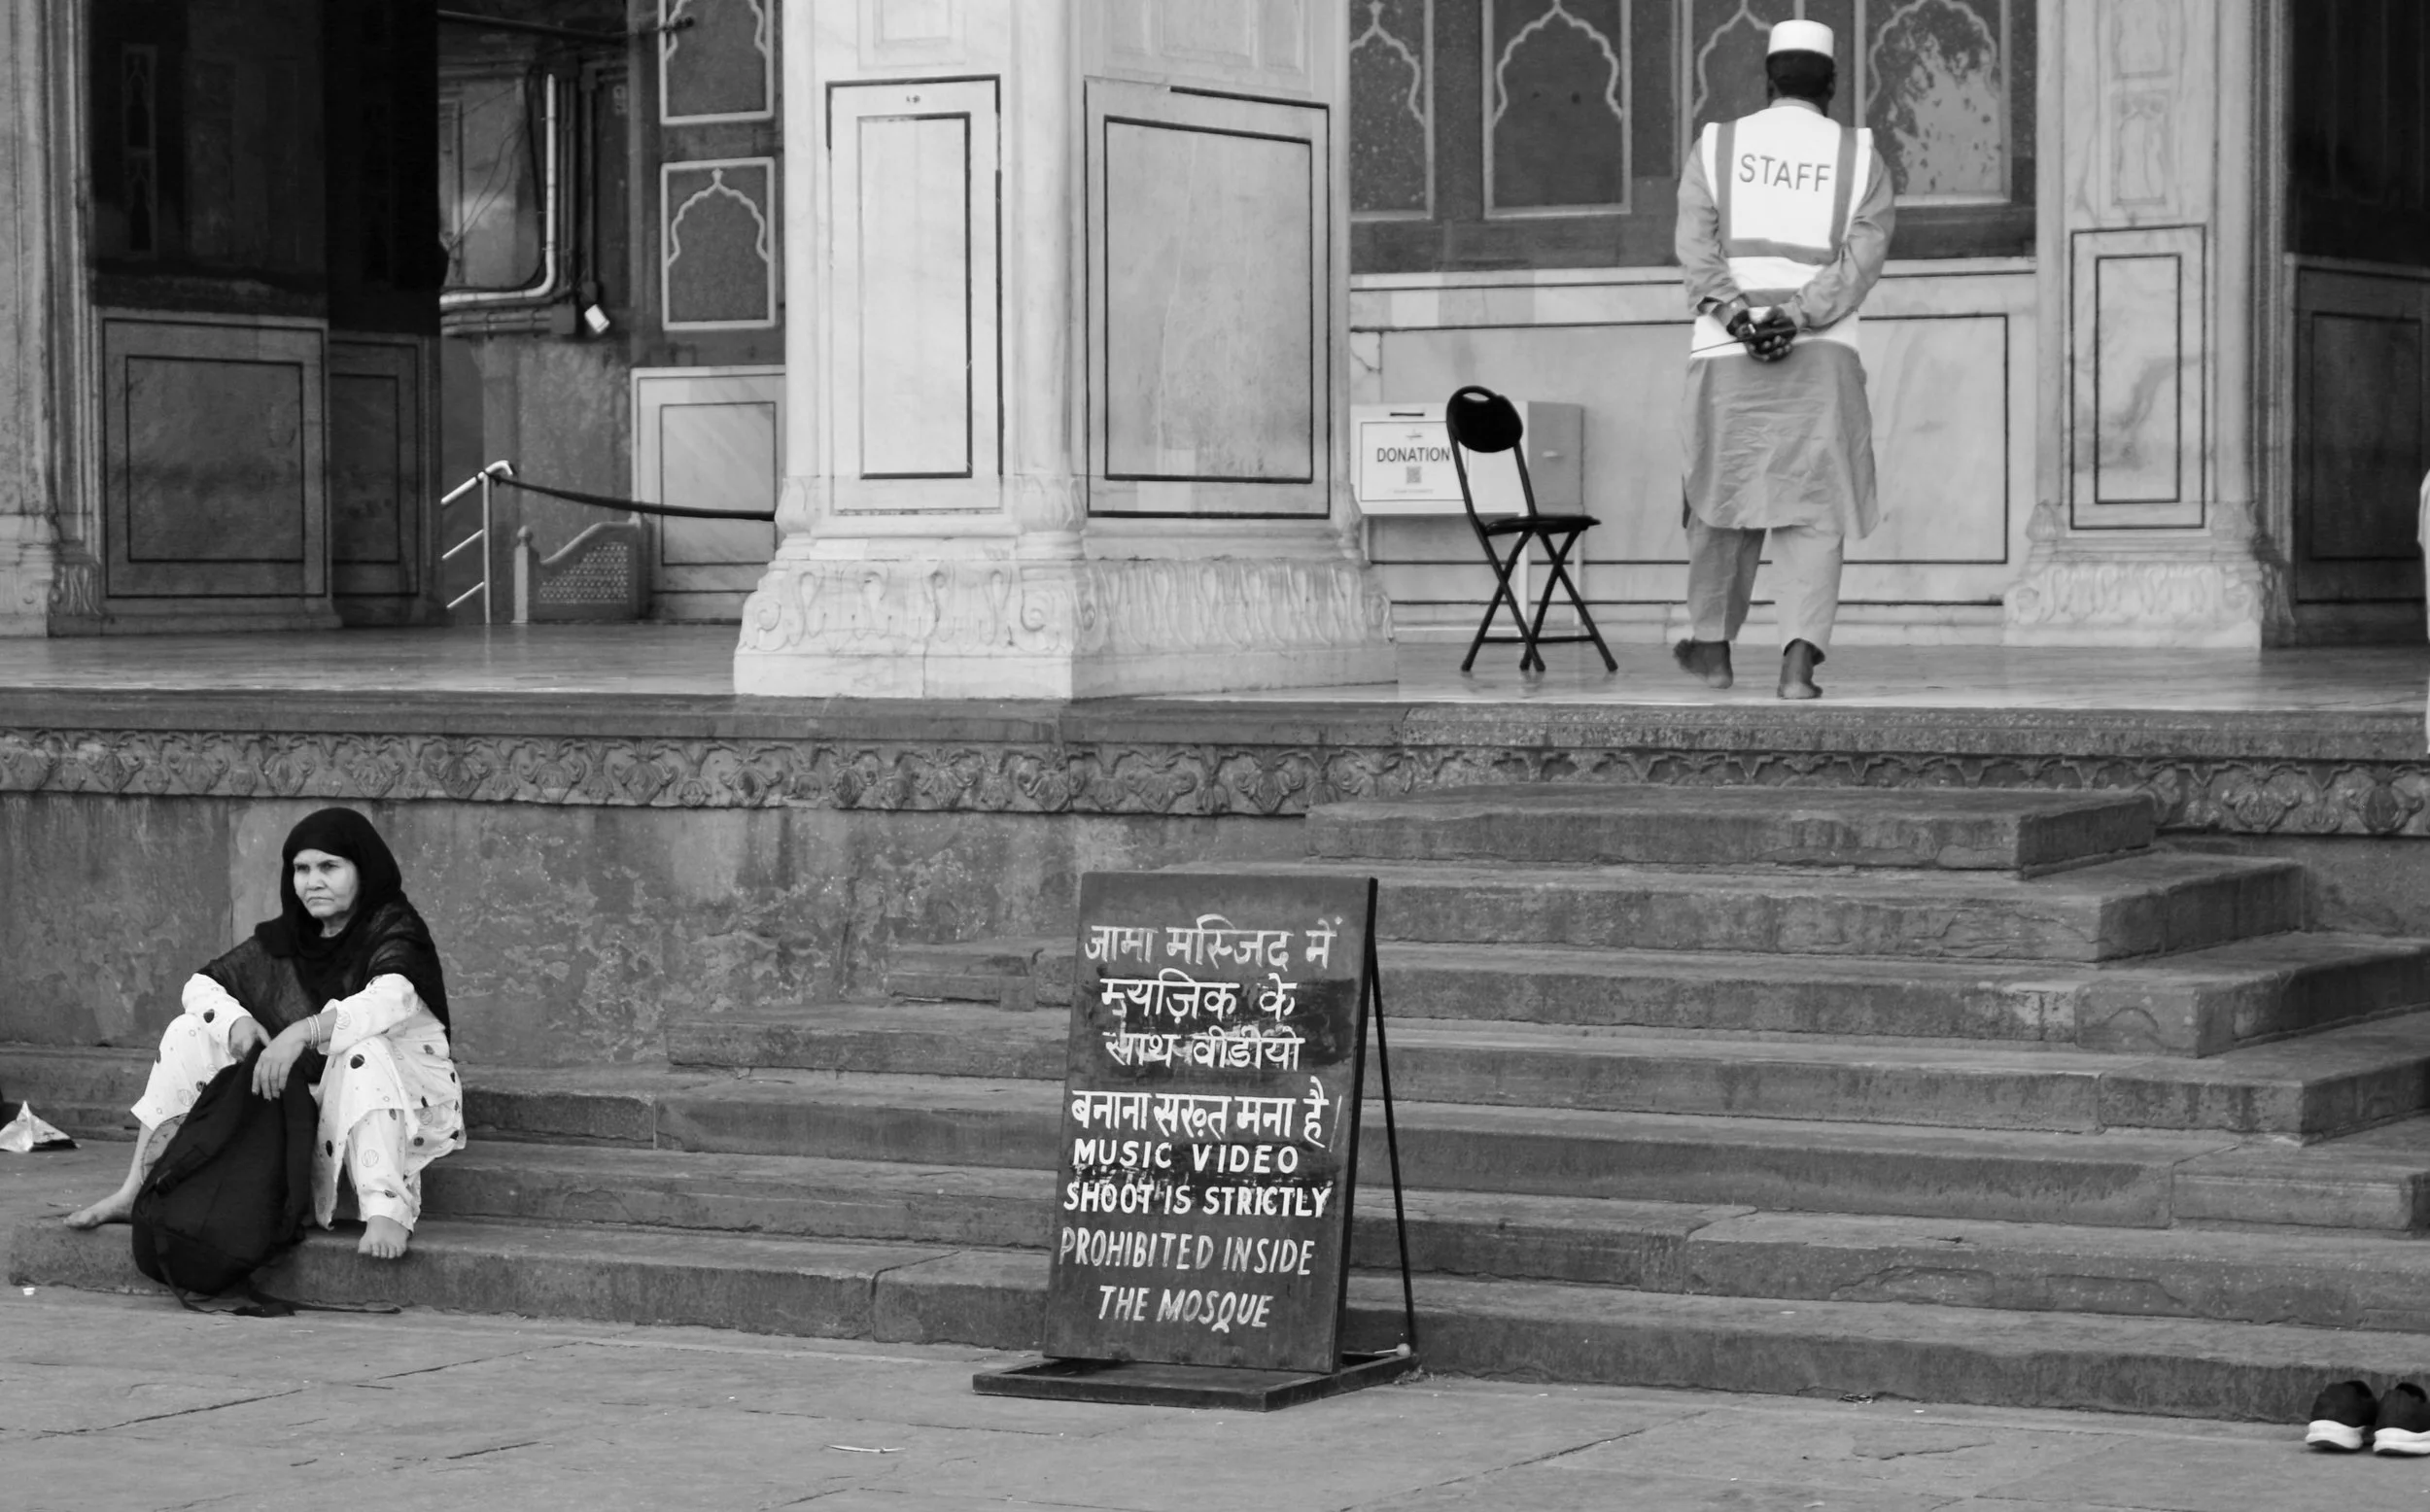 STAFF
DONATION
जामा मस्जिद में
म्यूज़िक के
साथ वीडीयो
बनाना सख़्त मना है|
MUSIC VIDEO
SHOOT IS STRICTLY
PROHIBITED INSIDE
THE MOSQUE